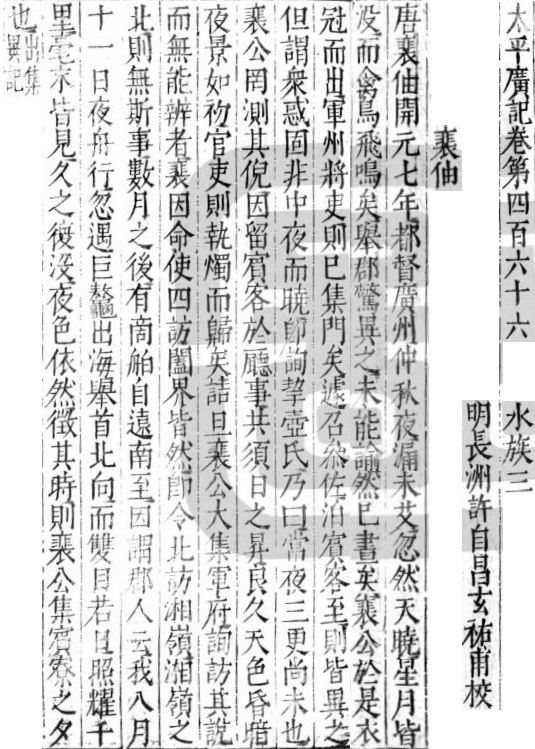 太平廣記卷第四百六十六
水族三
明長洲許自昌玄祐甫校
裴伷
唐裴伷開元七年都督廣州仲秋夜漏未艾忽然天曉星月皆
沒而禽鳥飛鳴矣舉郡驚異之未能諭然已晝矣裴公於是衣
冠而出軍州將吏則已集門矣遽召叅佐洎賓客至則皆異之
但謂衆惑固非中夜而曉卽詢挈壺氏乃曰常夜三更尚未也
裴公罔測其倪因留賓客於廳事共須日之昇良久天色昏暗
夜景如初官吏則執燭而歸矣詰旦裴公大集軍府詢訪其說
而無能辨者裴因命使四訪闔界皆然卽令北訪湘嶺湘嶺之
北則無斯事數月之後有商舶自遠南至因謂郡人云我八月
十一日夜舟行忽遇巨鼇出海舉首北向而雙目若日照耀千
里毫末皆見久之復沒夜色依然徵其時則裴公集賓寮之夕
也出集
異記